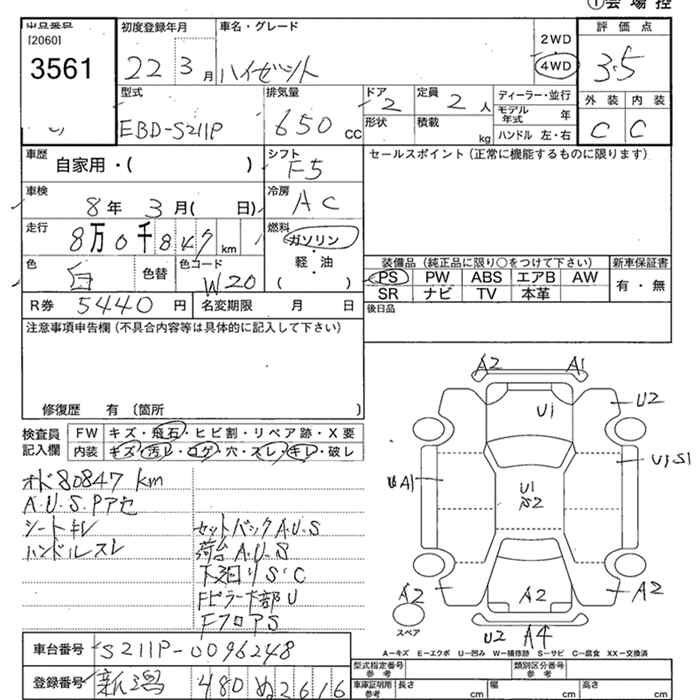 出品番号
[2060]
3561
初度登録年月
22 3月
車名・グレード
ハイゼット
2WD
4WD
評価点
3.5
外装 内装
C C
型式
EBD-S211P
排気量
650 cc
ドア
2
形状
定員
2人
積載 kg
ディーラー・並行
モデル年式 年
ハンドル 左・右
車歴
自家用・( )
シフト
F5
セールスポイント(正常に機能するものに限ります)
車検
8年 3月( 日)
冷房
AC
走行
8万0千847km
燃料
ガソリン
・
軽・油
・
( )
色
白
色替
色コード
W20
装備品(純正品に限り○をつけて下さい)
PS PW ABS エアB AW
SR ナビ TV 本革
新車保証書
有・無
R券 5440円
名変期限 月 日
後日品
注意事項申告欄(不具合内容等は具体的に記入して下さい)
修復歴 有 (箇所 )
検査員記入欄
FW キズ・飛石・ヒビ割・リペア跡・X要
内装 キズ・汚レ・コゲ・穴・スレ・キレ・破レ
オド80847km
A.U.S.Pアセ
シートキレ
ハンドルスレ
セットバックA.U.S
荷台A.U.S
下廻りS・C
Fピラー下部U
FフロアS
A2 A1
U1
U2
UA1
U1S1
U1
S2
A2
A2
A2
スペア
U2 A4
A-キズ E-エクボ U-凹み W-補修跡 S-サビ C-腐食 XX-交換済
車台番号 S211P-0096248
登録番号 新潟 480 ぬ 2616
型式指定番号
参考
類別区分番号
参考
車庫証明用
参考
長さ cm
幅 cm
高さ cm